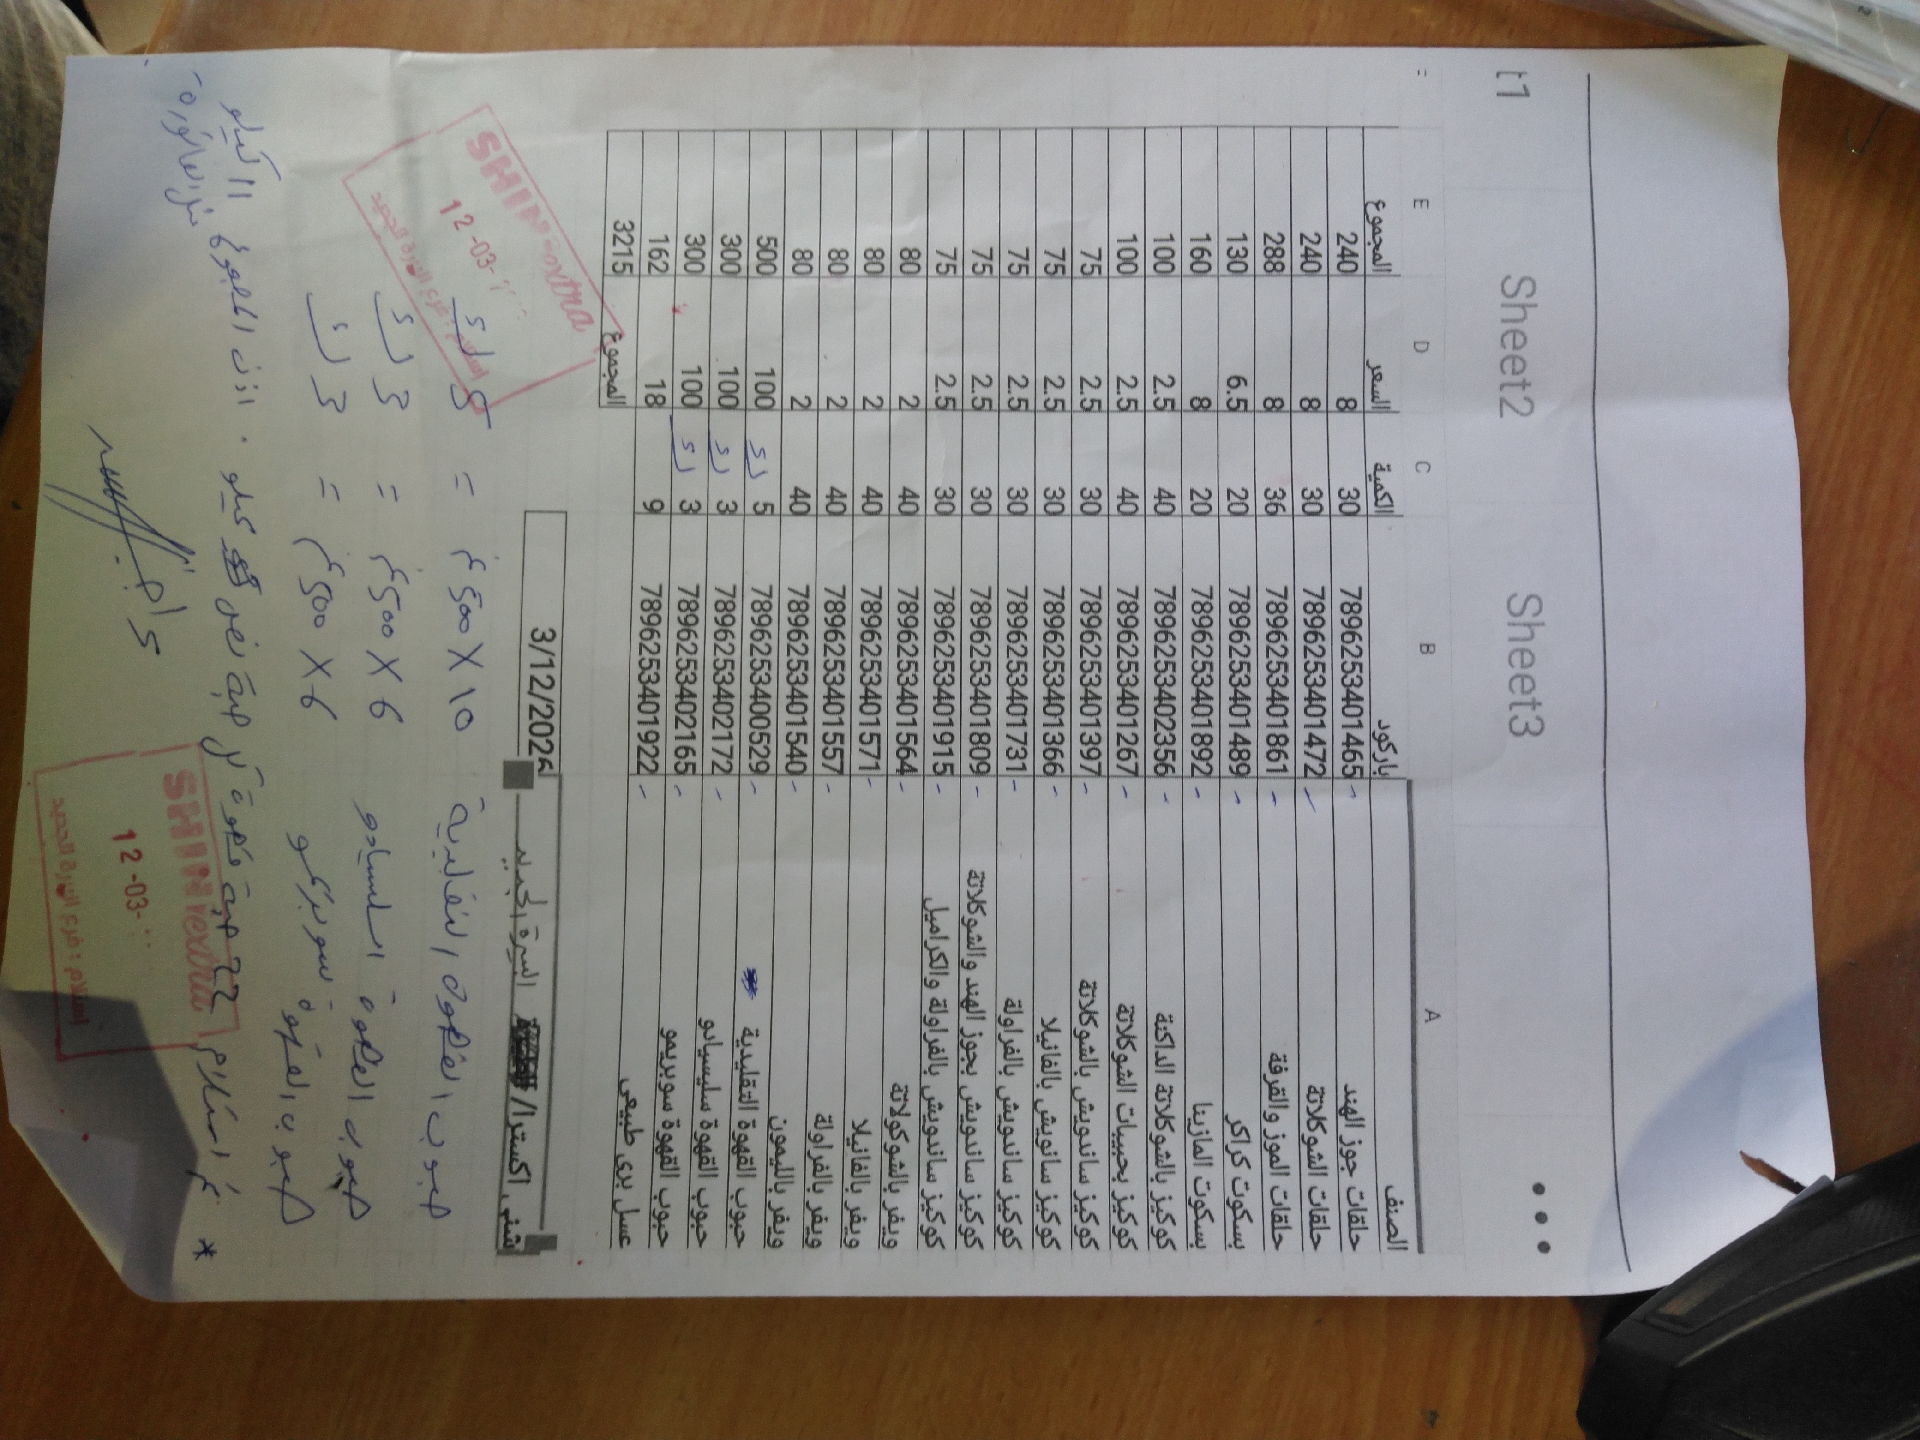 t1 Sheet2 Sheet3 •••
E D C B A
الصنف باركود الكمية السعر المجموع
حلقات جوز الهند 7896253401465 30 8 240
حلقات الشوكلاتة 7896253401472 30 8 240
حلقات الموز والقرفة 7896253401861 36 8 288
بسكوت كراكر 7896253401489 20 6.5 130
بسكوت المازينا 7896253401892 20 8 160
كوكيز بالشوكلاتة الداكنة 7896253402356 40 2.5 100
كوكيز بحبيبات الشوكلاتة 7896253401267 40 2.5 100
كوكيز ساندويش بالشوكلاتة 7896253401397 30 2.5 75
كوكيز سانوبش بالفانيلا 7896253401366 30 2.5 75
كوكيز ساندويش بالفراولة 7896253401731 30 2.5 75
كوكيز ساندويش بجوز الهند والشوكلاتة 7896253401809 30 2.5 75
كوكيز ساندويش بالفراولة والكراميل 7896253401915 30 2.5 75
ويفر بالشوكولاتة 7896253401564 40 2 80
ويفر بالفانيلا 7896253401571 40 2 80
ويفر بالفراولة 7896253401557 40 2 80
ويفر بالليمون 7896253401540 40 2 80
حبوب القهوة التقليدية 7896253400529 5 ك 100 500
حبوب القهوة سليسيانو 7896253402172 3 ك 100 300
حبوب القهوة سوبريمو 7896253402165 3 ك 100 300
عسل بري طبيعي 7896253401922 9 18 162
المجموع 3215
شني اكسترا/ السرة الجديد 3/12/2026
حبوب القهوة التقليدية 10 X 500 = 5 ك
حبوب القهوة 6 X 500 = 3 ك
حبوب القهوة سوبريمو 6 X 500 = 3 ك
* تم استلام 22 حبة قهوة كل حبة نص كيلو . اذن المجموع 11 كيلو
مثل الفاتورة
SHINextra
12-03-
استلام : فرع السرة الجديد
SHINextra
12-03-
استلام : فرع السرة الجديد